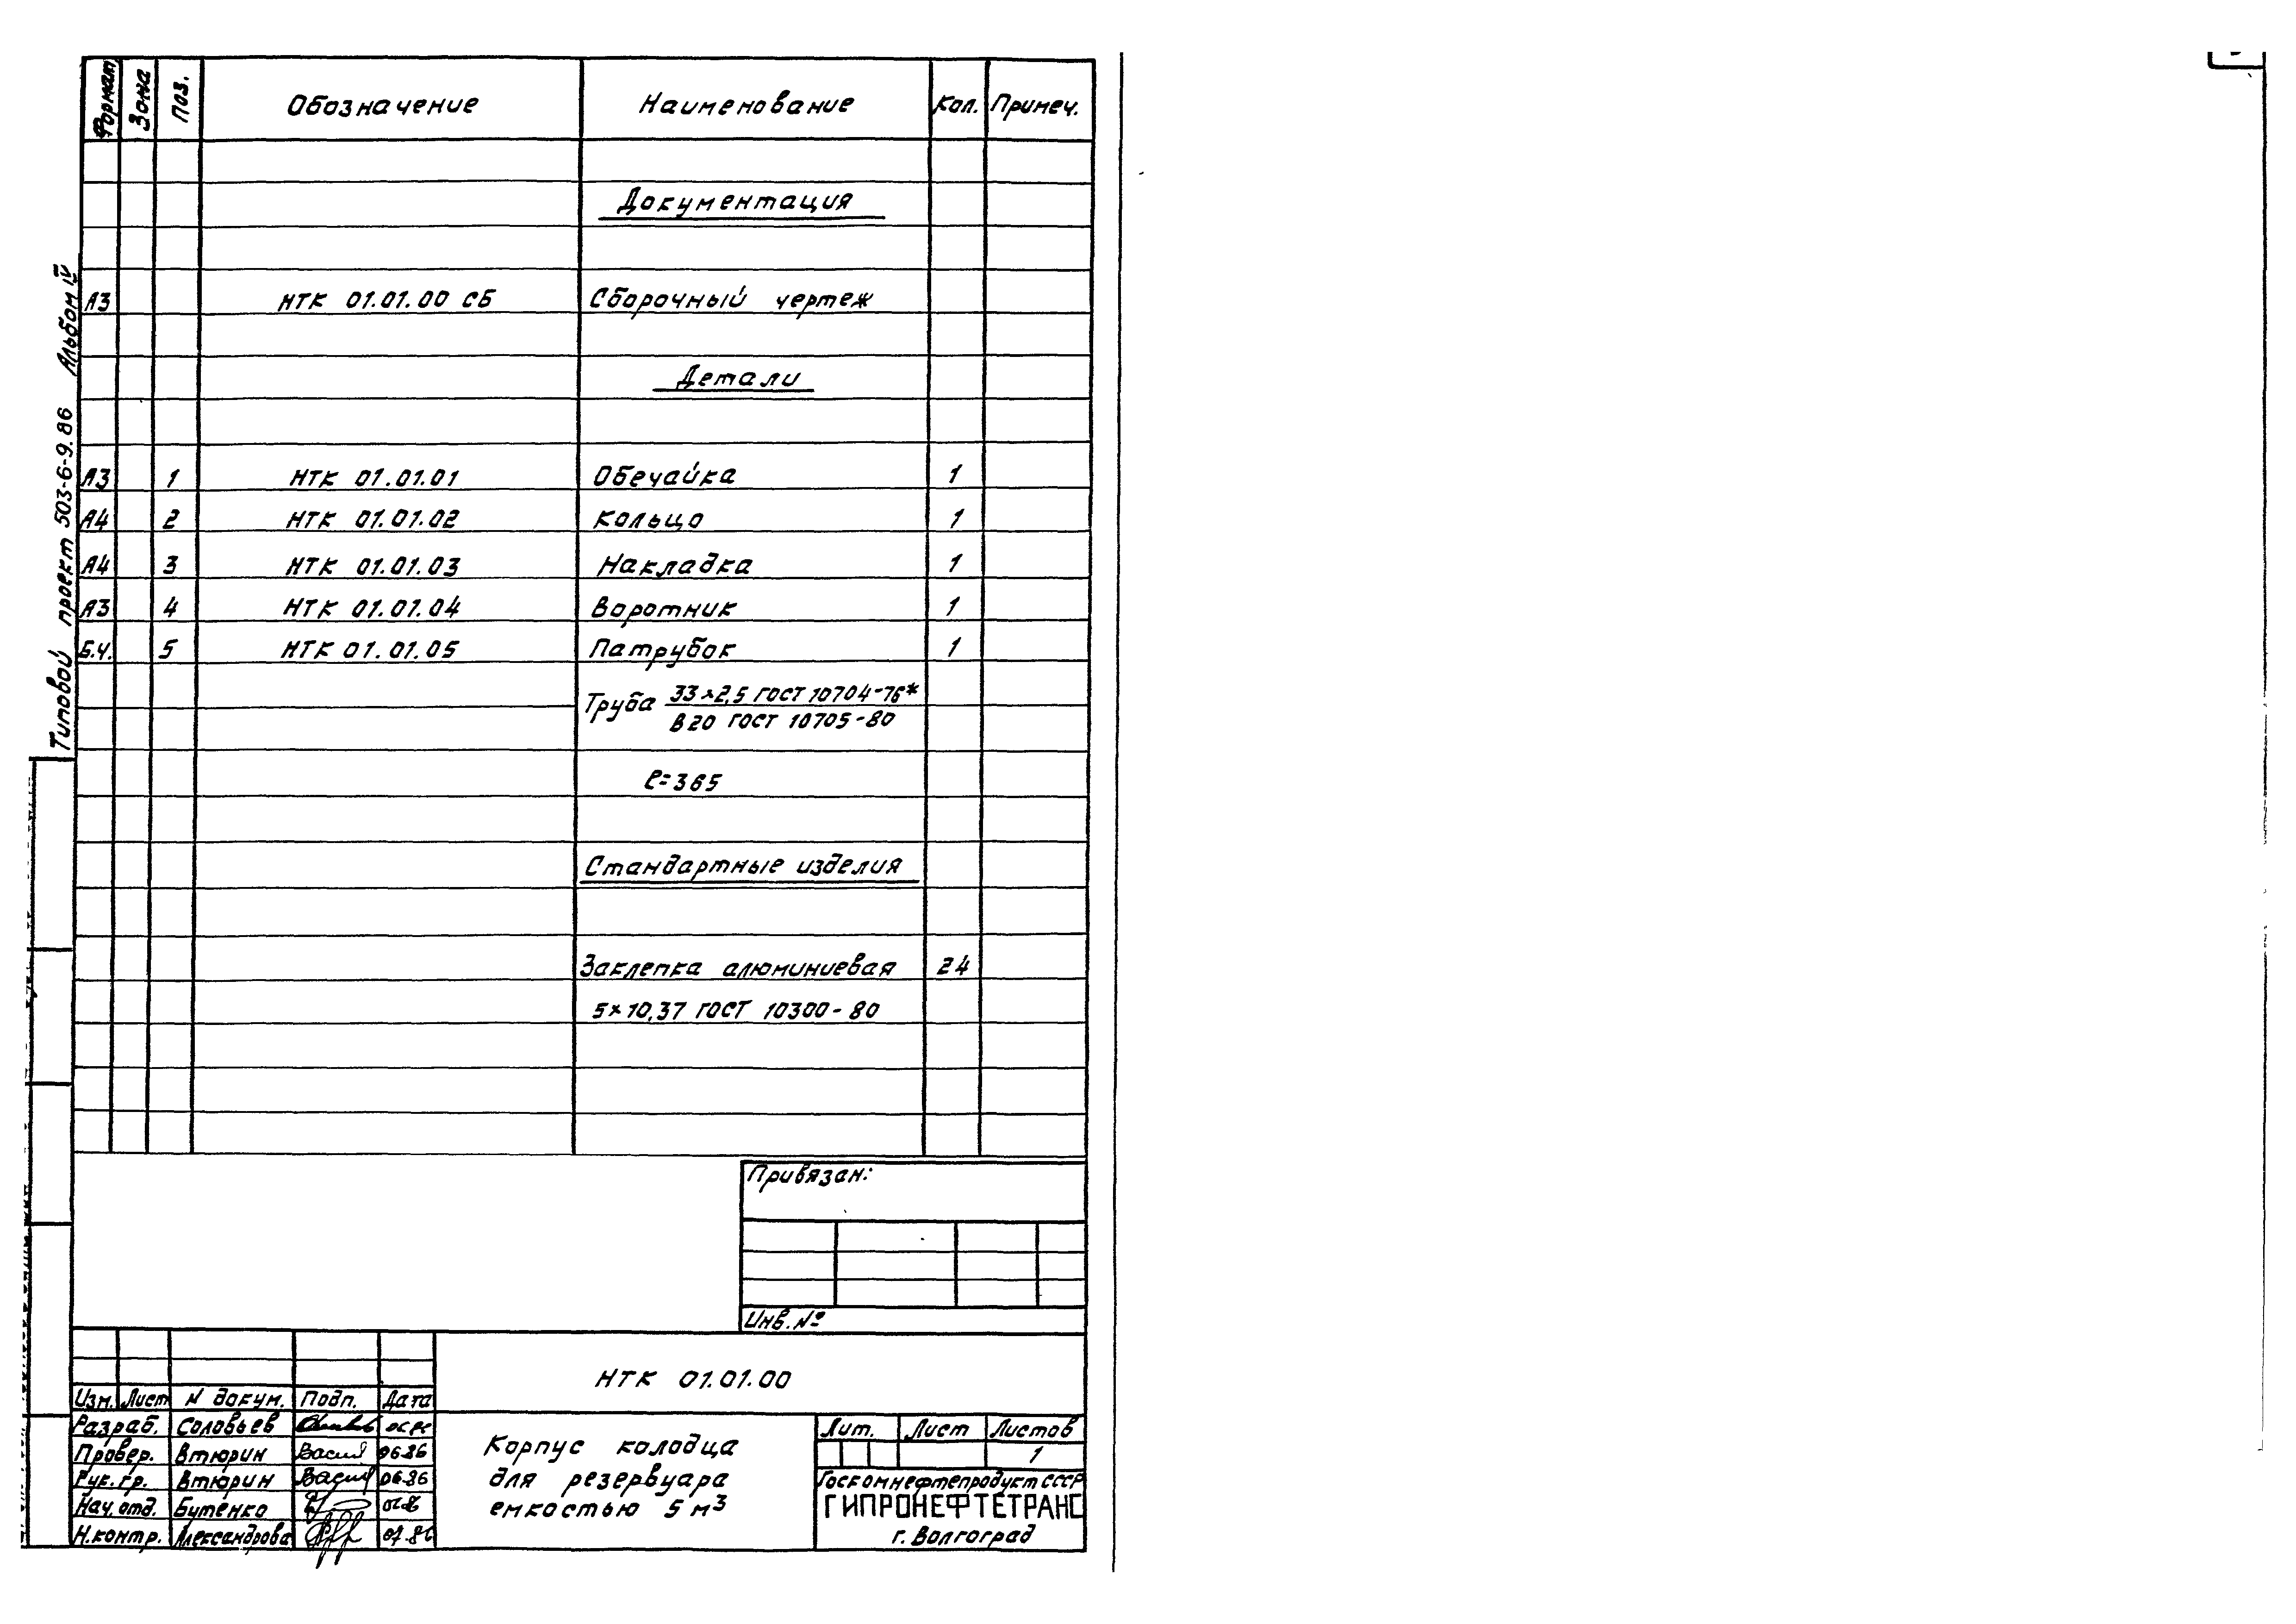 Формат Зона Поз. Обозначение Наименование Кол. Примеч.
Документация
А3 НТК 01.01.00 СБ Сборочный чертеж
Детали
А3 1 НТК 01.01.01 Обечайка 1
А4 2 НТК 01.01.02 Кольцо 1
А4 3 НТК 01.01.03 Накладка 1
А3 4 НТК 01.01.04 Воротник 1
Б.Ч. 5 НТК 01.01.05 Патрубок 1
Труба 33×2,5 ГОСТ 10704-76*
В20 ГОСТ 10705-80
ℓ=365
Стандартные изделия
Заклепка алюминиевая 24
5×10,37 ГОСТ 10300-80
Типовой проект 503-6-9.86 Альбом IV
Привязан:
Инв. №
НТК 01.01.00
Изм. Лист N докум. Подп. Дата
Разраб. Соловьев
Провер. Втюрин 06.86
Рук. гр. Втюрин 06.86
Нач. отд. Бутенко
Н.контр. Александрова 07.86
Корпус колодца
для резервуара
емкостью 5 м³
Лит. Лист Листов
1
Госкомнефтепродукт СССР
ГИПРОНЕФТЕТРАНС
г. Волгоград